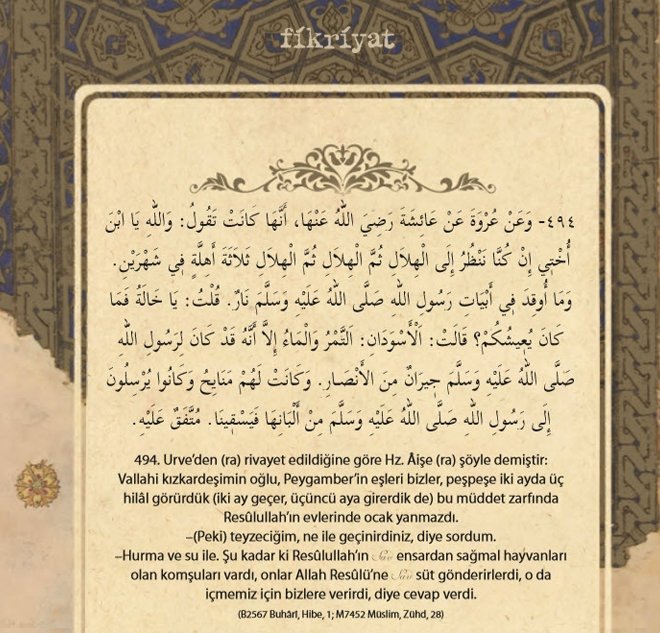 fikriyat
٤٩٤- وَعَنْ عُرْوَةَ عَنْ عَائِشَةَ رَضِيَ اللهُ عَنْهَا، أَنَّهَا كَانَتْ تَقُولُ: وَاللهِ يَا ابْنَ
أُخْتِي إِنْ كُنَّا نَنْظُرُ إِلَى الْهِلَالِ ثُمَّ الْهِلَالِ ثُمَّ الْهِلَالِ ثَلَاثَةَ أَهِلَّةٍ فِي شَهْرَيْنِ.
وَمَا أُوقِدَ فِي أَبْيَاتِ رَسُولِ اللهِ صَلَّى اللهُ عَلَيْهِ وَسَلَّمَ نَارٌ. قُلْتُ: يَا خَالَةُ فَمَا
كَانَ يُعِيشُكُمْ؟ قَالَتْ: اَلْأَسْوَدَانِ: اَلتَّمْرُ وَالْمَاءُ إِلَّا أَنَّهُ قَدْ كَانَ لِرَسُولِ اللهِ
صَلَّى اللهُ عَلَيْهِ وَسَلَّمَ جِيرَانٌ مِنَ الْأَنْصَارِ. وَكَانَتْ لَهُمْ مَنَايِحُ وَكَانُوا يُرْسِلُونَ
إِلَى رَسُولِ اللهِ صَلَّى اللهُ عَلَيْهِ وَسَلَّمَ مِنْ أَلْبَانِهَا فَيَسْقِينَا. مُتَّفَقٌ عَلَيْهِ.
494. Urve’den (ra) rivayet edildiğine göre Hz. Âişe (ra) şöyle demiştir:
Vallahi kızkardeşimin oğlu, Peygamber’in eşleri bizler, peşpeşe iki ayda üç
hilâl görürdük (iki ay geçer, üçüncü aya girerdik de) bu müddet zarfında
Resûlullah’ın evlerinde ocak yanmazdı.
–(Peki) teyzeciğim, ne ile geçinirdiniz, diye sordum.
–Hurma ve su ile. Şu kadar ki Resûlullah’ın Sav ensardan sağmal hayvanları
olan komşuları vardı, onlar Allah Resûlü’ne Sav süt gönderirlerdi, o da
içmemiz için bizlere verirdi, diye cevap verdi.
(B2567 Buhârî, Hibe, 1; M7452 Müslim, Zühd, 28)